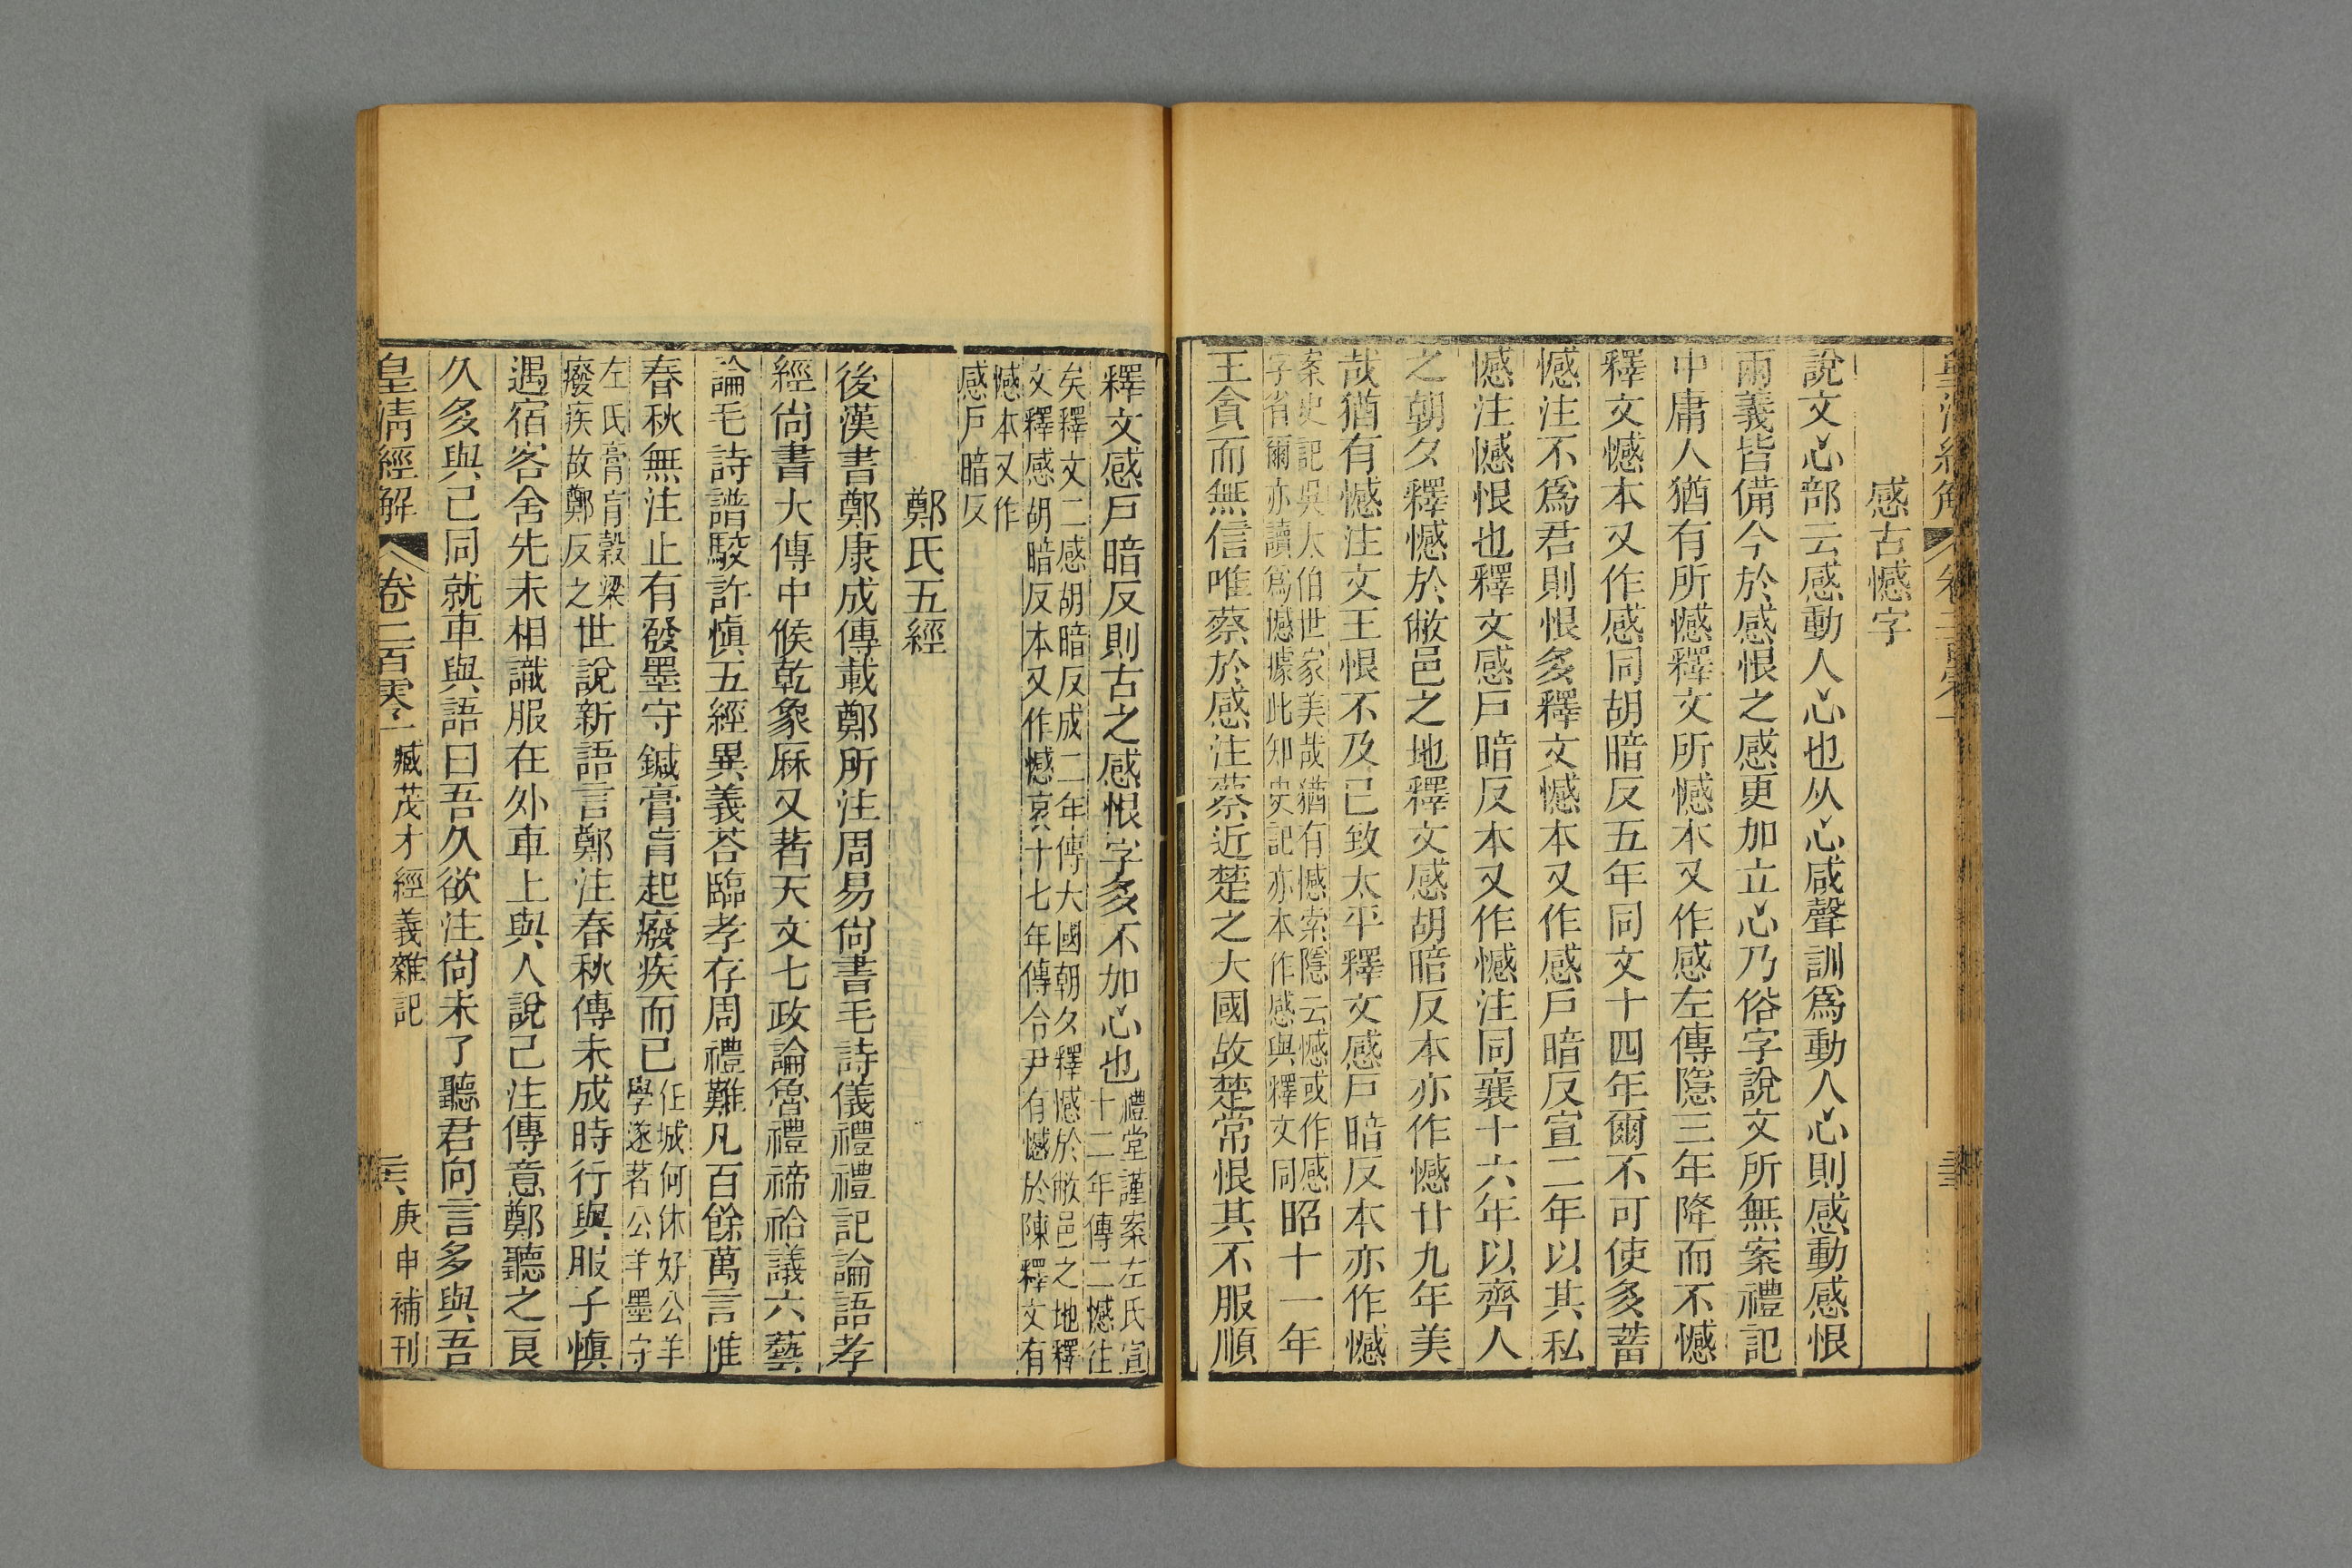 感古憾字
說文心部云感動人心也从心咸聲訓爲動人心則感動感恨
兩義皆備今於感恨之感更加立心乃俗字說文所無案禮記
中庸人猶有所憾釋文所憾本又作感左傳隱三年降而不憾
釋文憾本又作感同胡暗反五年同文十四年爾不可使多蓄
憾注不爲君則恨多釋文憾本又作感戶暗反宣二年以其私
憾注憾恨也釋文感戶暗反本又作憾注同襄十六年以齊人
之朝夕釋憾於敝邑之地釋文感胡暗反本亦作憾廿九年美
哉猶有憾注文王恨不及已致太平釋文感戶暗反本亦作憾
案史記吳太伯世家美哉猶有憾索隱云憾或作感
字省爾亦讀爲憾據此知史記亦本作感與釋文同
昭十一年
王貪而無信唯蔡於感注蔡近楚之大國故楚常恨其不服順
釋文感戶暗反則古之感恨字多不加心也
禮堂謹案左氏宣
十二年傳二憾往
矣釋文二感胡暗反成二年傳大國朝夕釋憾於敝邑之地釋
文釋感胡暗反本又作憾哀十七年傳令尹有憾於陳釋文有
憾本又作
感戶暗反
鄭氏五經
後漢書鄭康成傳載鄭所注周易尙書毛詩儀禮禮記論語孝
經尙書大傳中候乾象厤又著天文七政論魯禮禘祫議六藝
論毛詩譜駮許愼五經異義荅臨孝存周禮難凡百餘萬言惟
春秋無注止有發墨守鍼膏肓起廢疾而已
任城何休好公羊
學遂著公羊墨守
左氏膏肓穀梁
廢疾故鄭反之
世說新語言鄭注春秋傳未成時行與服子愼
遇宿客舍先未相識服在外車上與人說己注傳意鄭聽之良
久多與己同就車與語曰吾久欲注尙未了聽君向言多與吾
皇清經解
卷二百零二
臧茂才經義雜記
庚申補刊